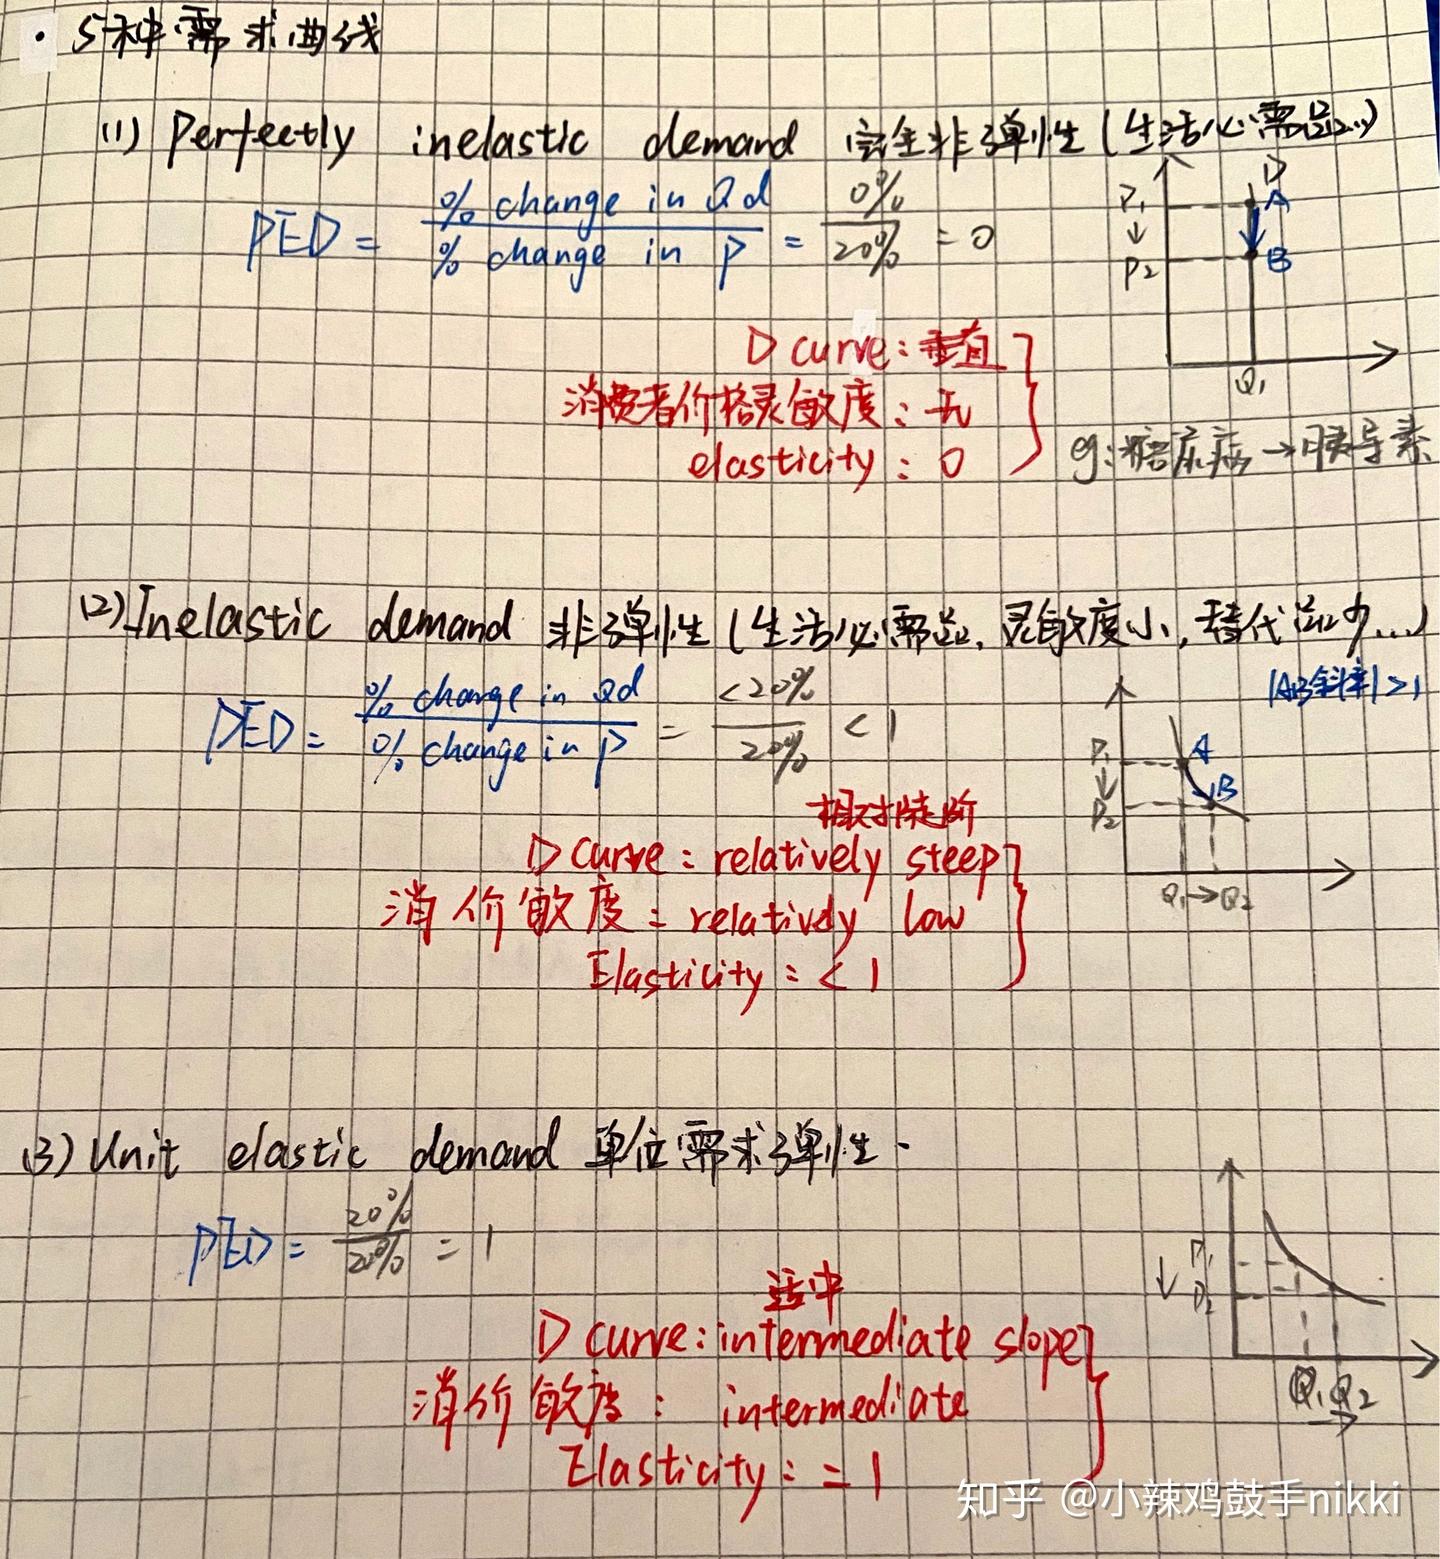 · 5种需求曲线
(1) Perfectly inelastic demand 完全非弹性 (生活必需品...)
PED = % change in Qd / % change in P = 0% / 20% = 0
P₁ ↓ P₂ D A B Q₁
D curve: 垂直
消费者价格灵敏度: 无
elasticity: 0
eg: 糖尿病 → 胰岛素
(2) Inelastic demand 非弹性 (生活必需品, 灵敏度小, 替代品少...)
PED = % change in Qd / % change in P = <20% / 20% < 1
|AB斜率| > 1
P₁ ↓ P₂ A B Q₁ → Q₂
相对陡阶
D curve: relatively steep
消价敏度: relatively low
Elasticity: < 1
(3) Unit elastic demand 单位需求弹性.
PED = 20% / 20% = 1
↓ P₁ P₂ Q₁ Q₂ →
适中
D curve: intermediate slope
消价敏度: intermediate
Elasticity: = 1
知乎 @小辣鸡鼓手nikki